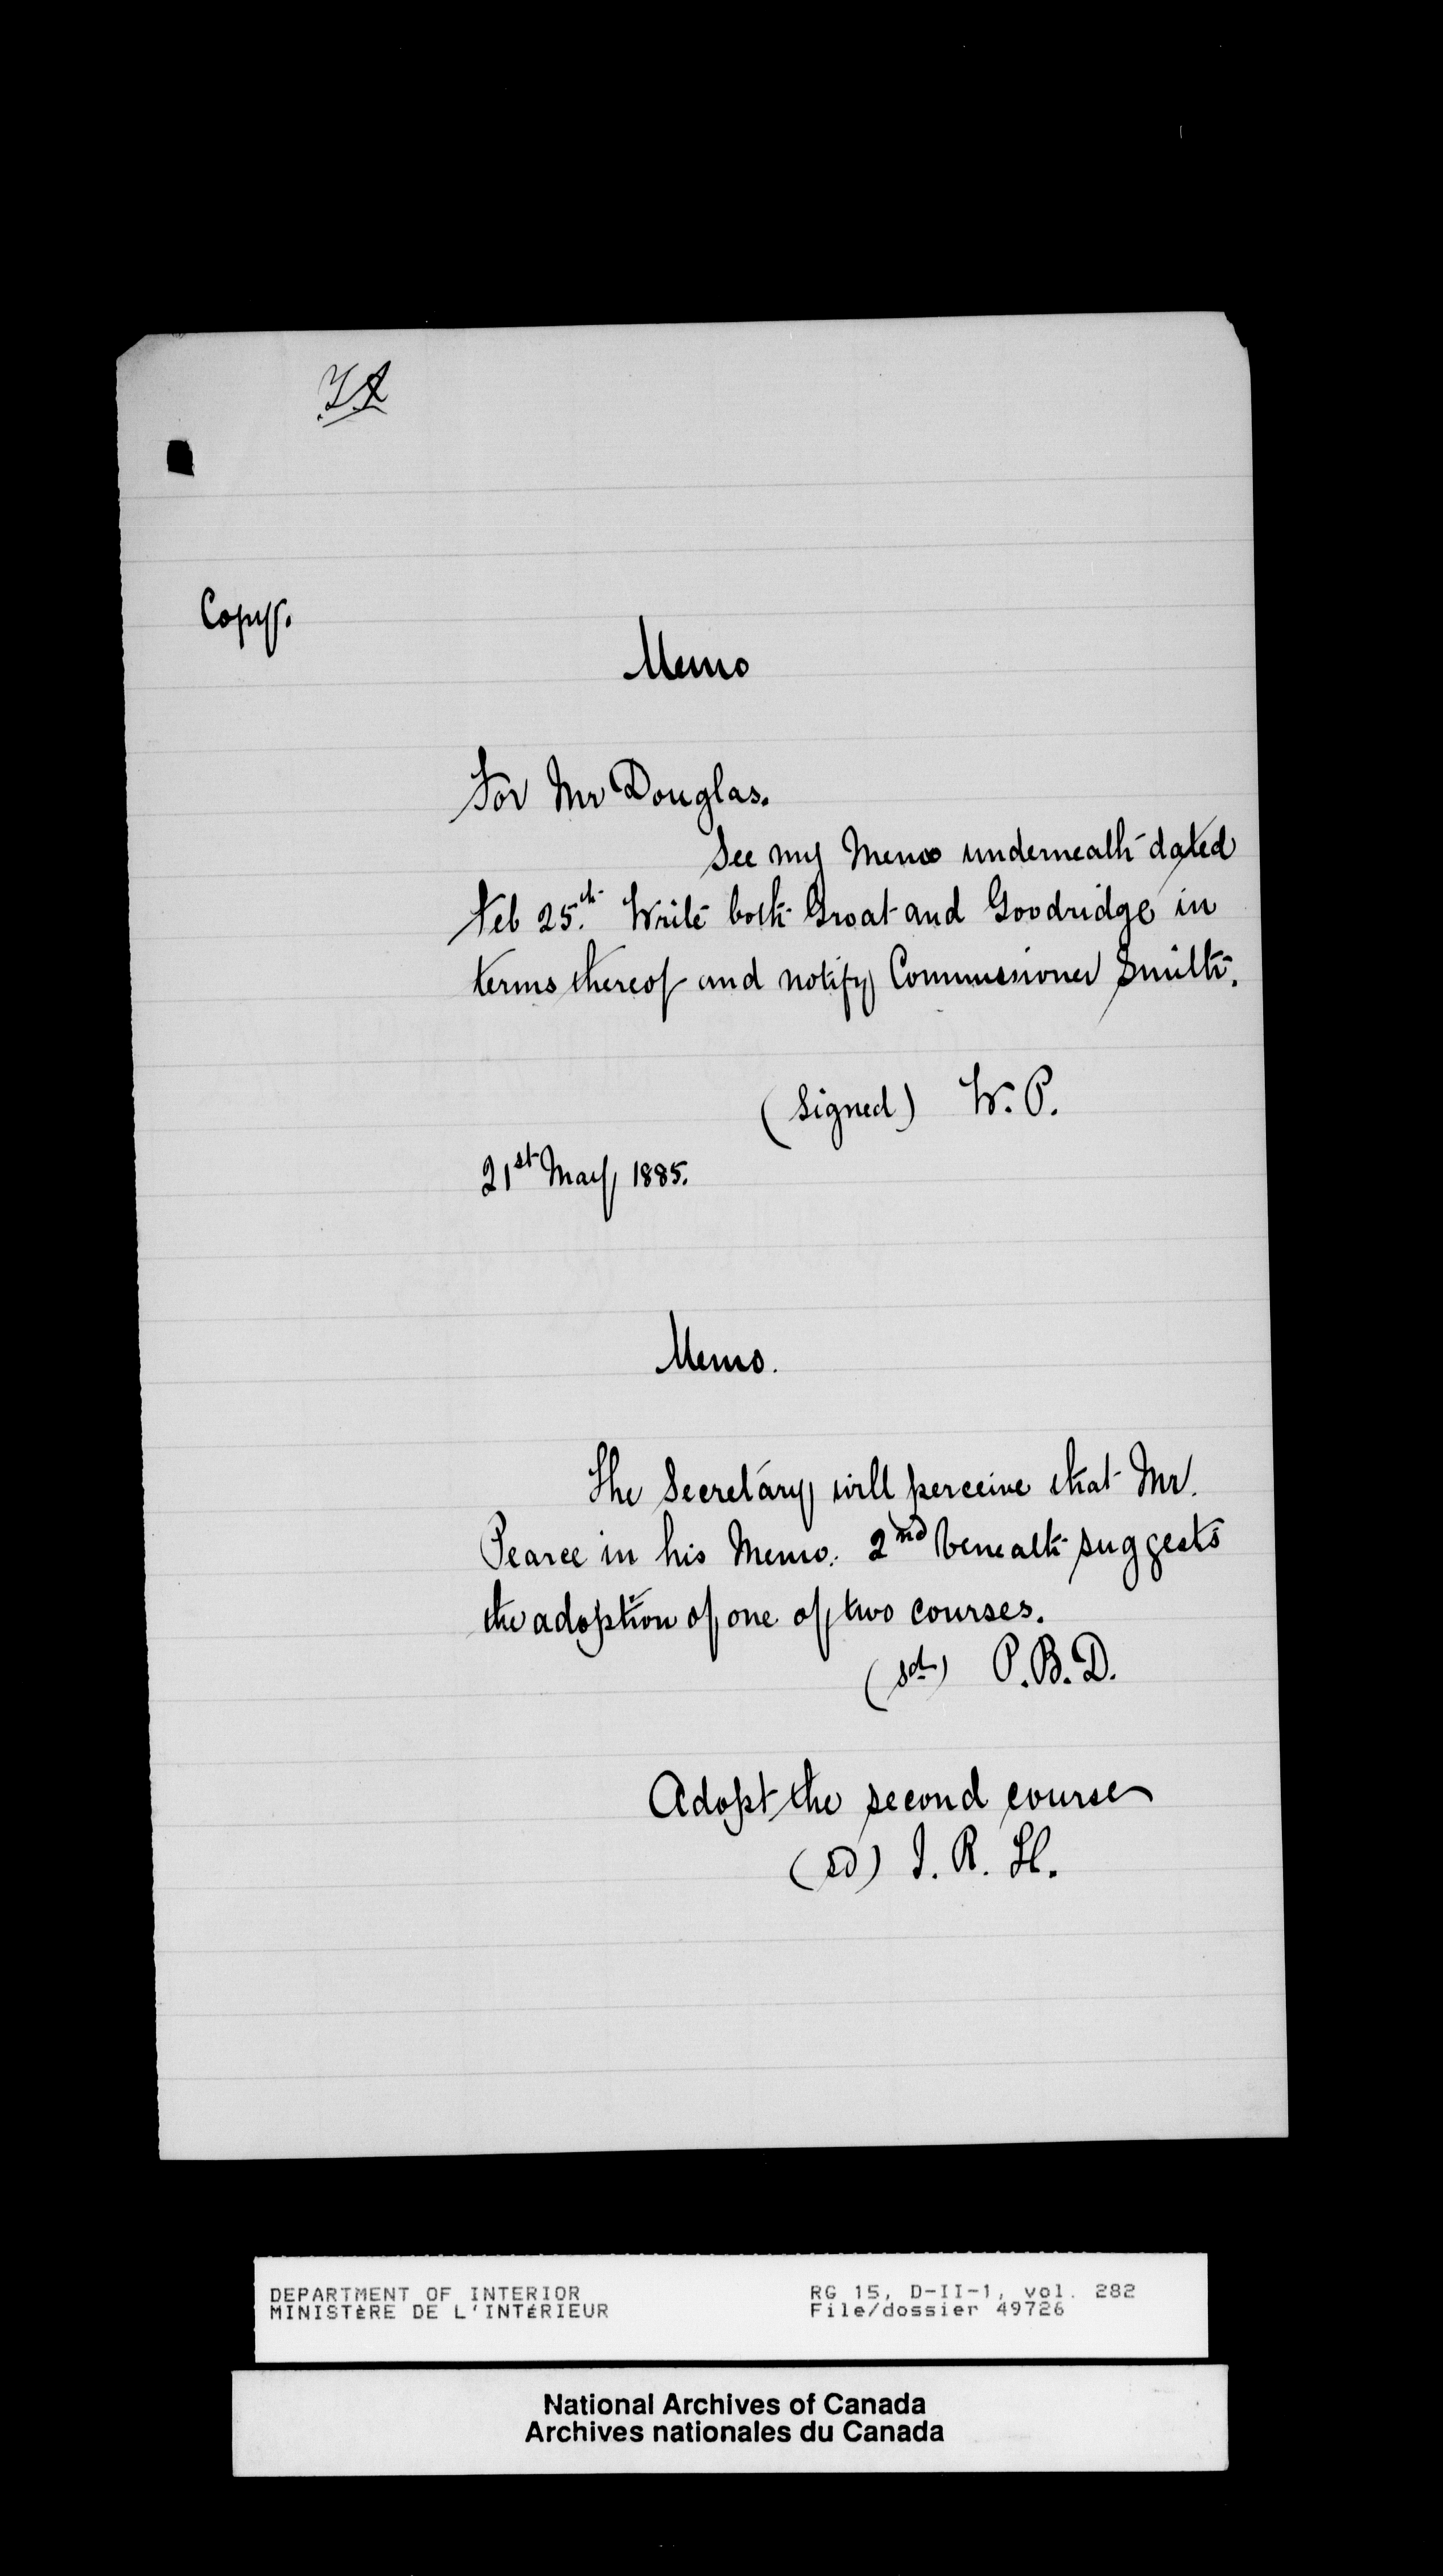 Copy.
Memo
For Mr Douglas.
See my Memo underneath dated
Feb 25.th Write both Groat and Goodridge in
terms thereof and notify Commissioner Smith.
(Signed) W. P.
21st May, 1885.
Memo.
The Secretary will perceive that Mr.
Pearce in his Memo. 2nd beneath suggests
the adoption of one of two courses.
(sd) P. B. D.
Adopt the second course
(sd) J. R. H.
DEPARTMENT OF INTERIOR RG 15, D-II-1, vol. 282
MINISTÈRE DE L'INTÉRIEUR File/dossier 49726
National Archives of Canada
Archives nationales du Canada